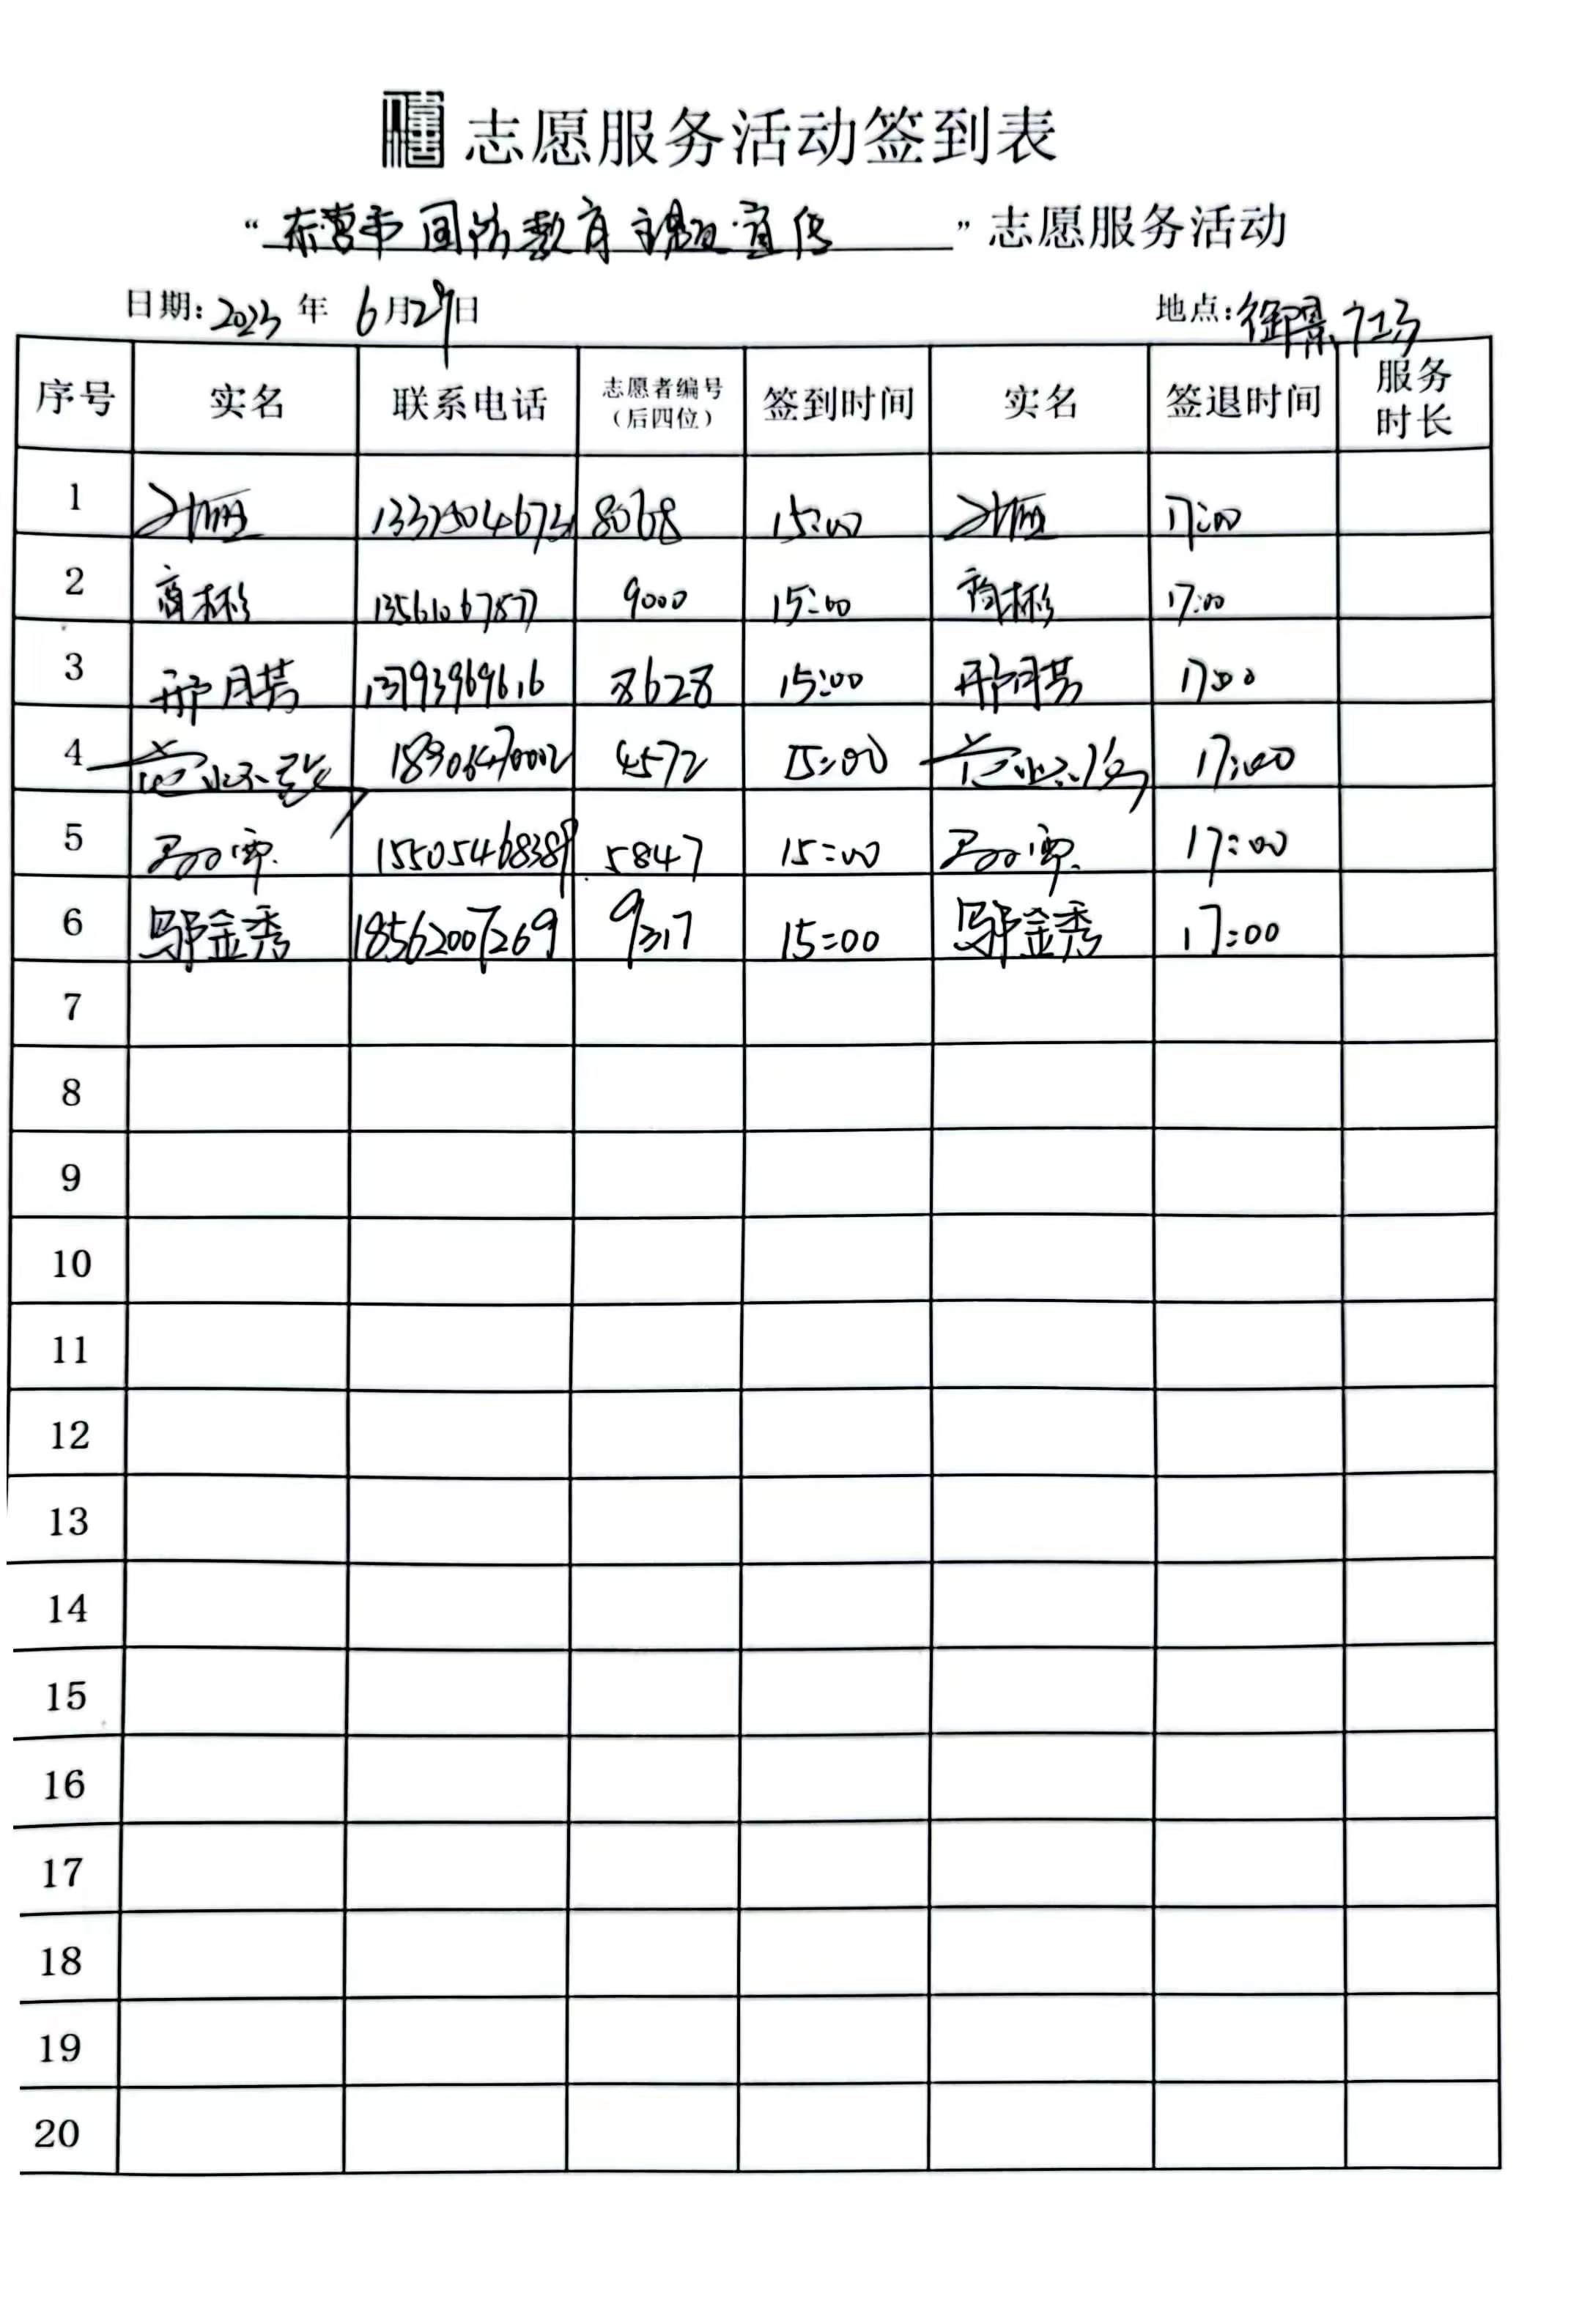 志愿服务活动签到表
“东营市国防教育主题宣传”志愿服务活动
日期:2023年6月29日 地点:御景社区
序号 实名 联系电话 志愿者编号（后四位） 签到时间 实名 签退时间 服务时长
1 8068 15:00 17:00
2 商彬彬 13561067577 9000 15:00 商彬彬 17:00
3 邢月芳 13793969616 8628 15:00 邢月芳 17:00
4 18906470002 4572 15:00 17:00
5 15505468389 5847 15:00 17:00
6 邬金秀 18562007269 9317 15:00 邬金秀 17:00
7
8
9
10
11
12
13
14
15
16
17
18
19
20